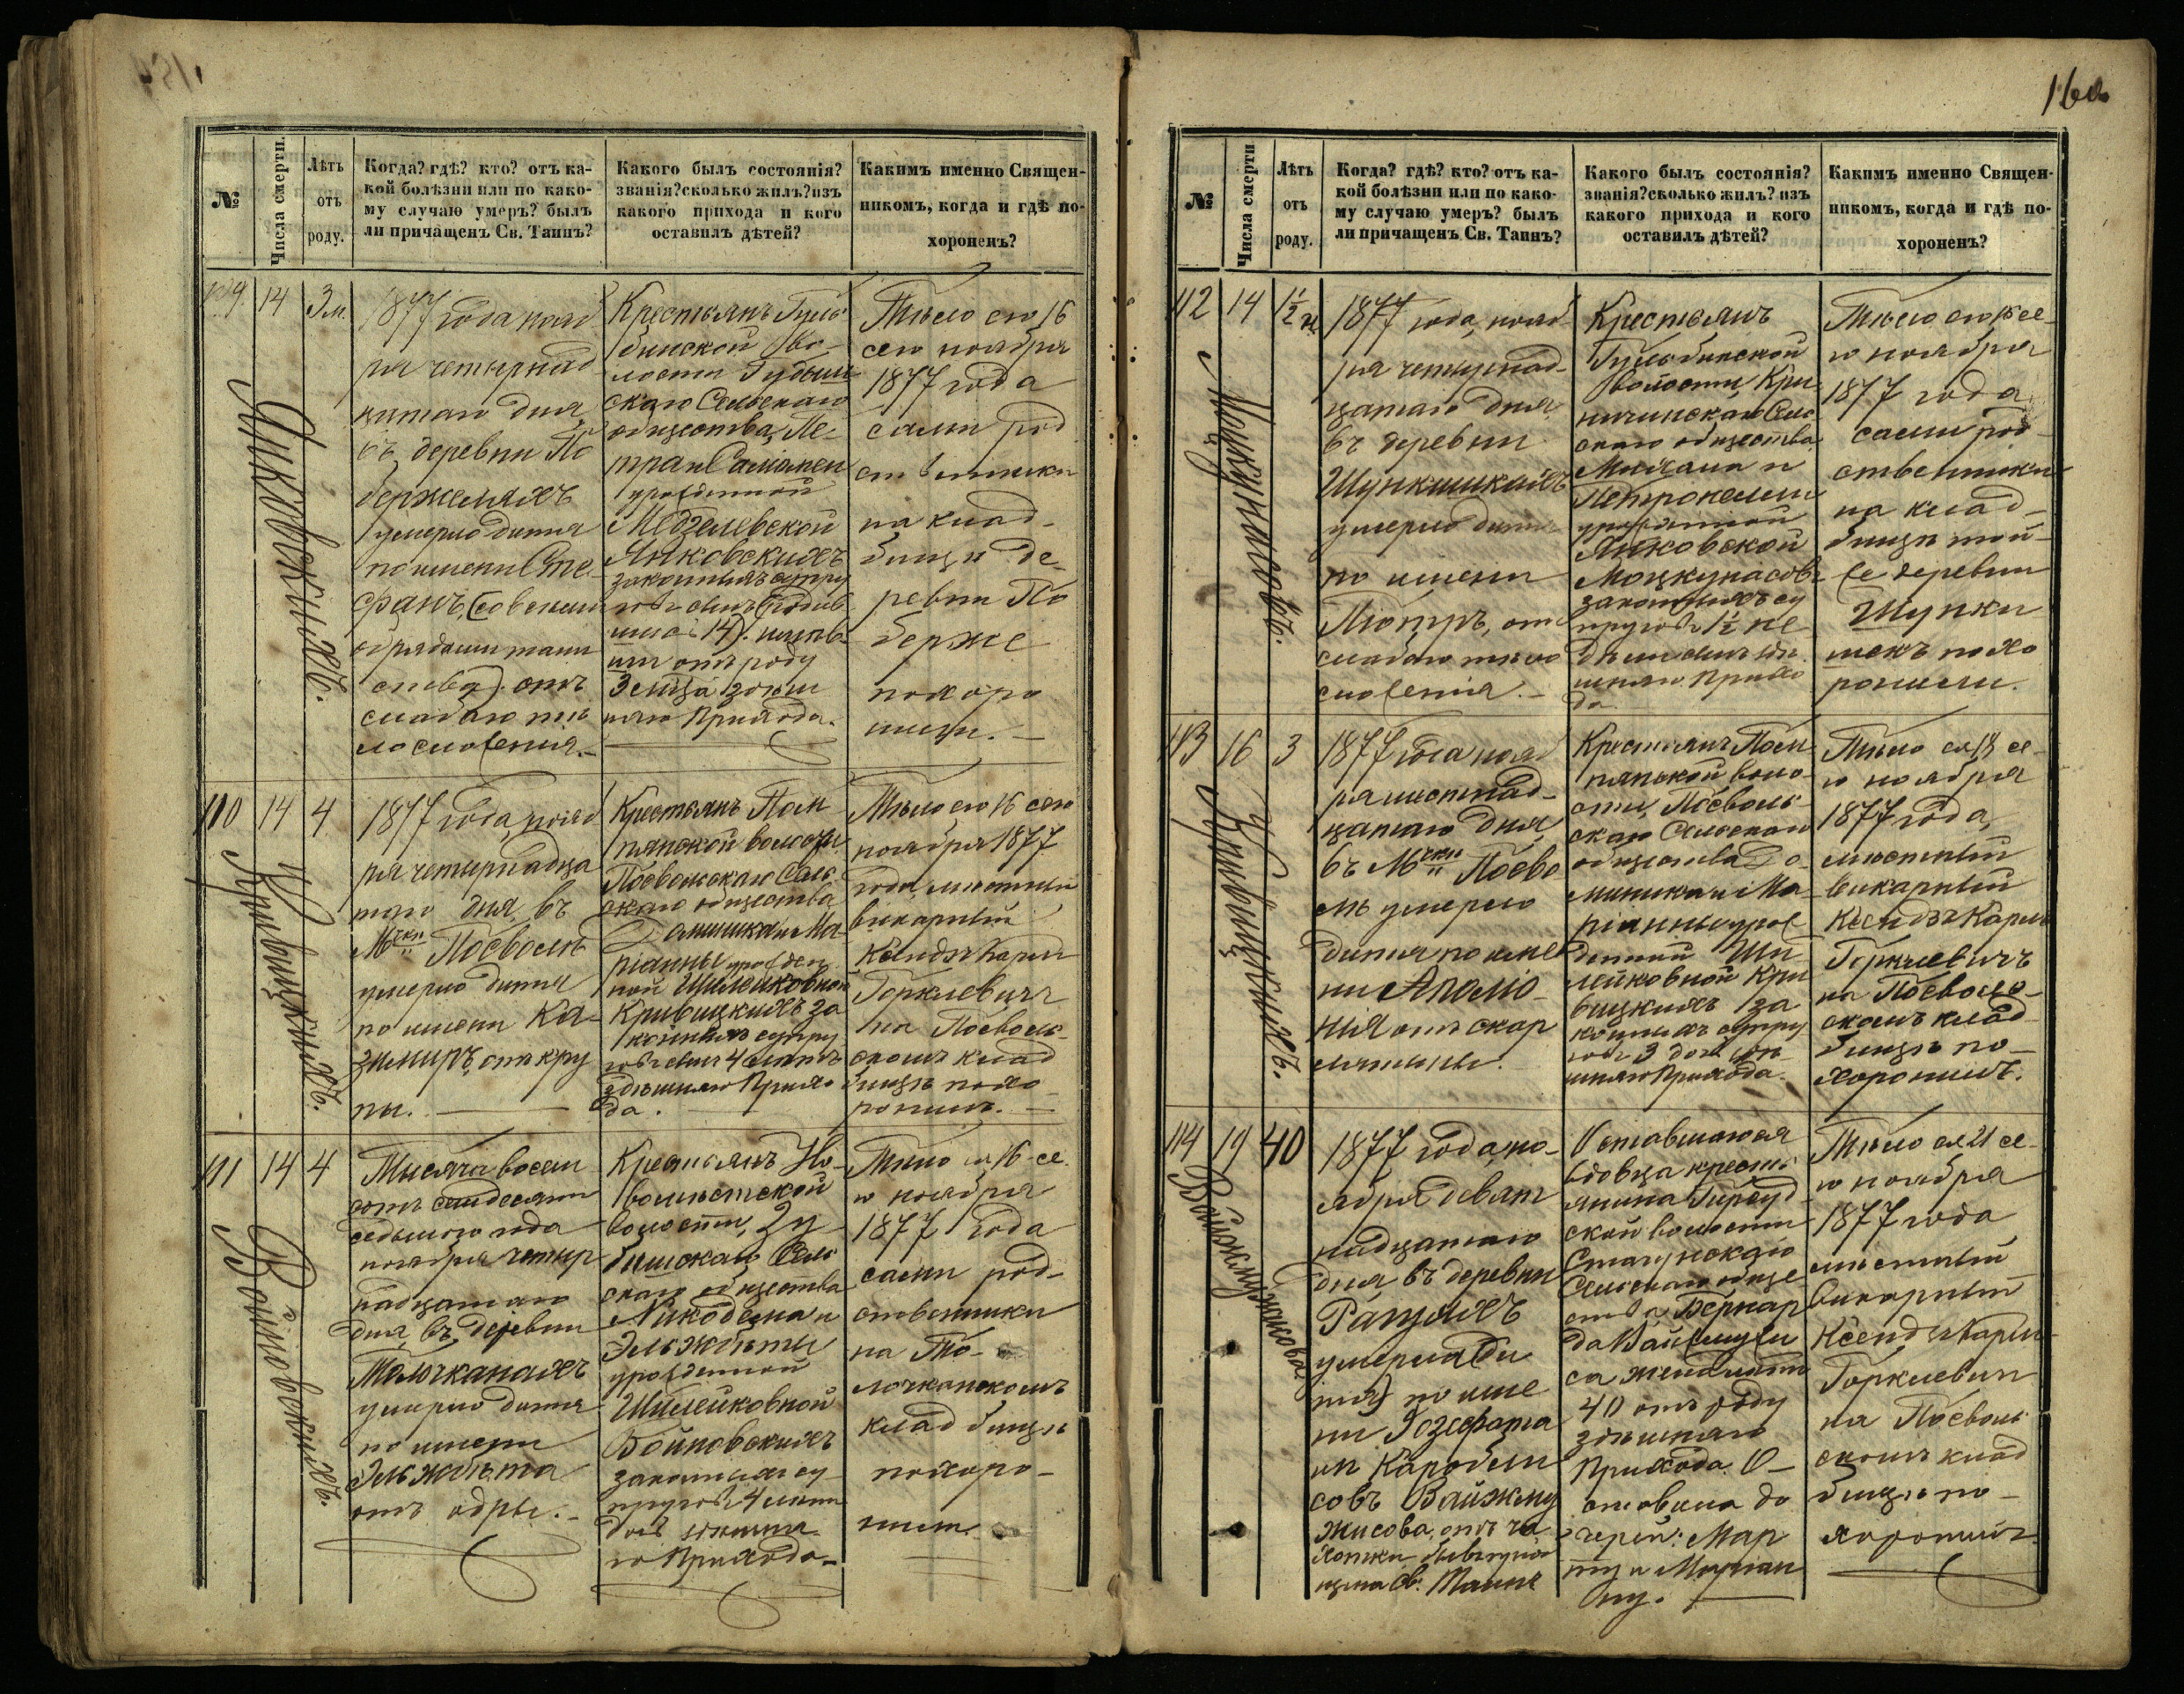 160
№
Числа смерти.
Лѣтъ
отъ
роду.
Когда? гдѣ? кто? отъ ка-
кой болѣзни или по како-
му случаю умеръ? былъ
ли причащенъ Св. Таинъ?
Какого былъ состоянія?
званія? сколько жилъ? изъ
какого прихода и кого
оставилъ дѣтей?
Какимъ именно Священ-
никомъ, когда и гдѣ по-
хороненъ?
109
14
3 м.
Янковскихъ.
1877 года нояб
ря четырнад
цатаго дня
въ деревни По
бержеляхъ
умерло дитя
по имени Сте-
фанъ, (совсеми
обрядами таин
ства). отъ
слабаго тѣ
лосложенія.
Крестьянъ Гуль
бинской во-
лости
скаго Сельскаго
общества, Пе-
тра и Саломеи
урожденной
Медзелевской
Янковскихъ
законныхъ супру
говъ сынъ (родив
шійся 14).
отъ роду
3 мѣс. здѣш
няго Прихода.
Тѣло его 16
сего ноября
1877 года
сами род
ственники
на клад-
бищѣ де-
ревни По
берже
похоро
нили.
110
14
4
Кривицкихъ.
1877 года, нояб
ря четырнадца
таго дня, въ
Мчки Посволѣ
умерло дитя
по имени Ка-
зимиръ, отъ кру
пы.
Крестьянъ Пом
пянской волости
Посвольскаго Сель
скаго общества
Доминика и Ма
ріанны урожден
ной Шилейковной
Кривицкихъ за
конныхъ супру
говъ сынъ 4 лѣтъ
здѣшняго Прихо
да.
Тѣло его 16 сего
ноября 1877
года, мѣстный
викарный
Ксендзъ Карлъ
Горкевичъ
на Посволь-
скомъ клад
бищѣ похо
ронилъ.
111
14
4
Войновскихъ.
Тысяча восем
сотъ семдесятъ
седьмого года
ноября четыр
надцатаго
дня, въ деревни
Толочканахъ
умерло дитя
по имени
Эльжбѣта
отъ одры.
Крестьянъ Но-
вомѣстской
волости,
скаго Сель
скаго общества
Никодема и
Эльжбѣты
урожденной
Шилейковной
Войновскихъ
законныхъ су-
пруговъ 4 лѣтъ
дочь здѣшня-
го Прихода.
Тѣло ея 16 се-
го ноября
1877 года
сами род-
ственники
на То-
лочканскомъ
кладбищѣ
похоро-
нили.
№
Числа смерти
Лѣтъ
отъ
роду.
Когда? гдѣ? кто? отъ ка-
кой болѣзни или по како-
му случаю умеръ? былъ
ли причащенъ Св. Таинъ?
Какого былъ состоянія?
званія? сколько жилъ? изъ
какого прихода и кого
оставилъ дѣтей?
Какимъ именно Священ-
никомъ, когда и гдѣ по-
хороненъ?
112
14
1½ н
Моцкунасовъ.
1877 года, нояб
ря четырнад-
цатаго дня
въ деревни
Шункишкахъ
умерло дитя
по имени
Піотръ, отъ
слабаго тѣло
сложенія.
Крестьянъ
Гульбинской
волости, Кри
ничинскаго Сель
скаго общества
Михаила и
Петронели
урожденной
Янковской
Моцкунасовъ
законныхъ су
пруговъ 1½ не
дѣли сынъ здѣ
шняго Прихо
да.
Тѣло его 15 се-
го ноября
1877 года
сами род-
ственники
на клад-
бищѣ той-
же деревни
Шунки
шекъ похо
ронили.
113
16
3
Кривицкихъ.
1877 года нояб
ря шестнад-
цатаго дня,
въ Мчки Посво
лѣ умерло
дитя по име
ни Аполо-
нія отъ скар
лятины.
Крестьянъ Пом
пянской воло-
сти, Посволь-
скаго Сельскаго
общества До-
миника и Ма-
ріанны урож
денной Ши
лейковной Кри
вицкихъ за
конныхъ супру
говъ 3 дочь здѣ
шняго Прихода.
Тѣло ея 18 се-
го ноября
1877 года,
мѣстный
викарный
Ксендзъ Карлъ
Горкевичъ
на Посволь-
скомъ клад-
бищѣ по-
хоронилъ.
114
19
40
Войжмужисова
1877 года, но-
ября девят
надцатаго
дня въ деревни
Рагуляхъ
умерла
по име
ни Іозефата
изъ
совъ Вайжму
жисова, отъ ча
хотки бывъ прича
щена Св. Таинъ
Оставшаяся
вдовца крестъ
янина
ской волости
Сельскаго обще
ства Бернар
да Вайжмужи
са жена лѣтъ
40 отъ роду
здѣшняго
Прихода. О-
ставила до
черей: Мар
ту и Маріан
ну.
Тѣло ея 21 се-
го ноября
1877 года
мѣстный
викарный
Ксендзъ Карлъ
Горкевичъ
на Посволь
скомъ клад
бищѣ по-
хоронилъ.